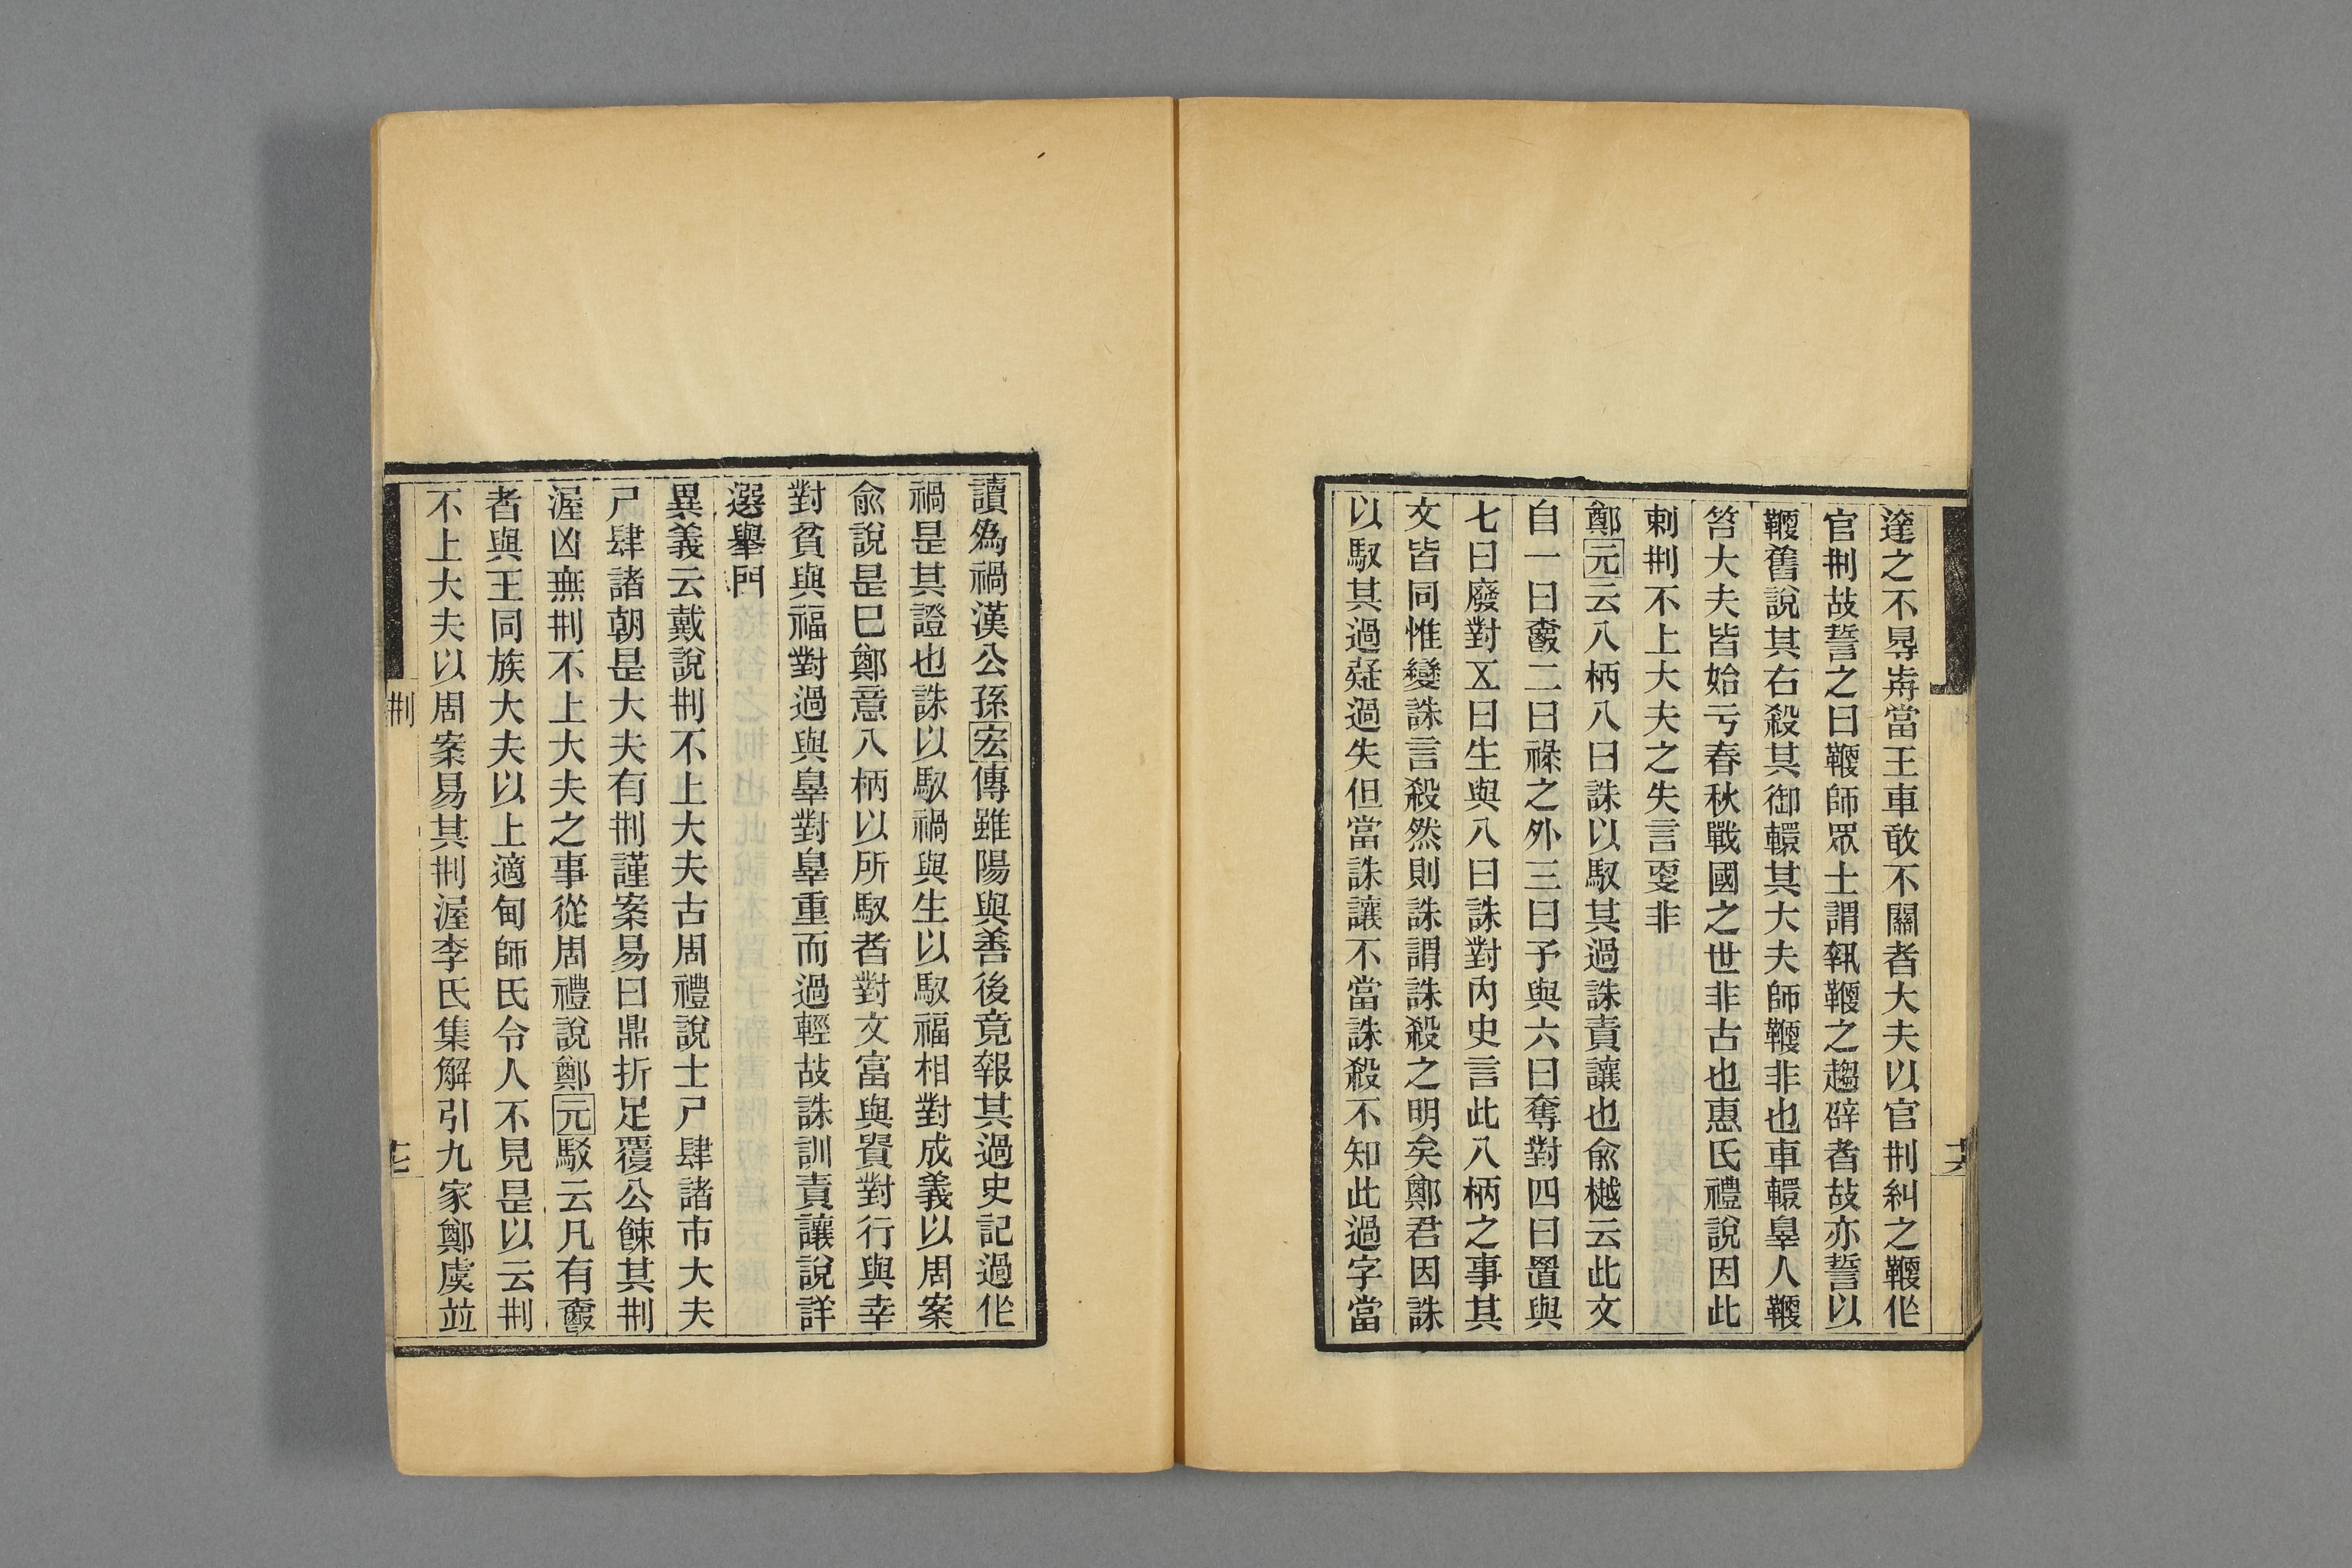 達之不㝵歬當王車敢不關者大夫以官𠛬糾之鞭作
官𠛬故誓之曰鞭師眾士謂執鞭之趨辟者故亦誓以
鞭舊說其右殺其御轘其大夫師鞭非也車轘辠人鞭
笞大夫皆始亏春秋戰國之世非古也惠氏禮說因此
剌𠛬不上大夫之失言㪅非
鄭元云八柄八曰誅以馭其過誅責讓也俞樾云此文
自一曰爵二曰祿之外三曰予與六曰奪對四曰置與
七曰廢對五曰生與八曰誅對內史言此八柄之事其
文皆同惟變誅言殺然則誅謂誅殺之明矣鄭君因誅
以馭其過疑過失但當誅讓不當誅殺不知此過字當
讀爲禍漢公孫宏傳雖陽與善後竟報其過史記過作
禍是其證也誅以馭禍與生以馭福相對成義以周案
俞說是巳鄭意八柄以所馭者對文富與貴對行與幸
對貧與福對過與辠對辠重而過輕故誅訓責讓說詳
選舉門
異義云戴說𠛬不上大夫古周禮說士尸肆諸市大夫
尸肆諸朝是大夫有𠛬謹案易曰鼎折足覆公餗其𠛬
渥凶無𠛬不上大夫之事從周禮說鄭元駁云凡有爵
者與王同族大夫以上適甸師氏令人不見是以云𠛬
不上大夫以周案易其𠛬渥李氏集解引九家鄭虞竝
𠛬
十六
十七